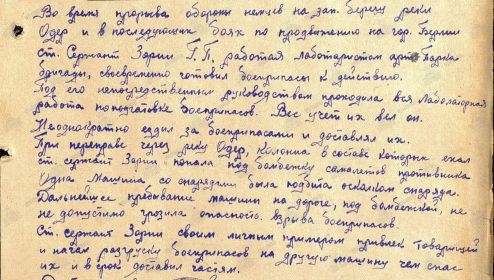 Во время прорыва обороны немцев на зап. берегу реки
Одер и в последующих боях по продвижению на гор. Берлин
ст. Сержант Зорин Г.П. работая лаборантом арт. Парка
бригады, своевременно готовил боеприпасы к действию.
Под его непосредственным руководством проходила вся лабораторная
работа по подготовке боеприпасов. Вес учет их вел он.
Неоднократно ездил за боеприпасами и доставлял их.
При переправе через реку Одер, колонна в составе которых ехал
ст. сержант Зорин попала под бомбежку самолетов противника
Одна машина со снарядами была подбита осколком снаряда.
Дальнейшее пребывание машины на дороге, под бомбежкой, не
не допустимо грозила опасность взрыва боеприпасов.
Ст. сержант Зорин своим личным примером привлек товарищей
и начал разгрузку боеприпасов на другую машину чем спас
их и в срок доставил частям.